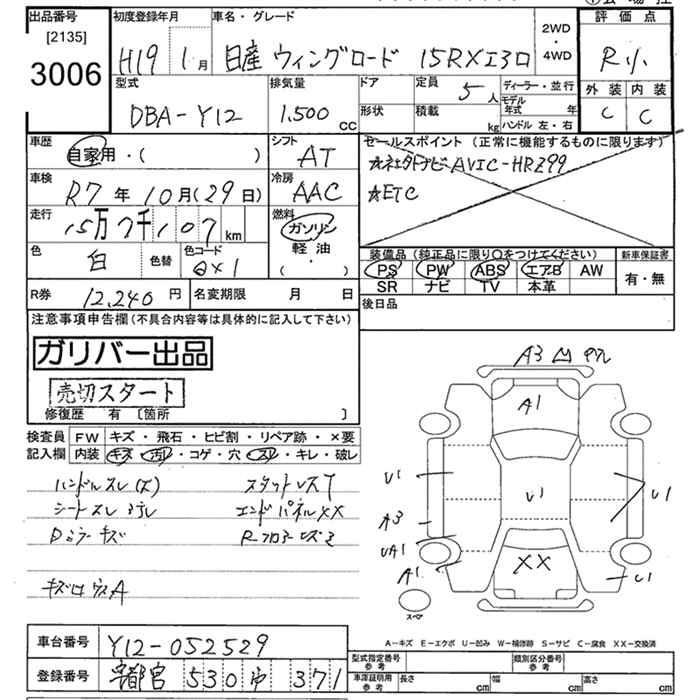 出品番号
[2135]
3006
初度登録年月
H19 1月
車名・グレード
日産 ウィングロード 15RXエアロ
2WD・4WD
評価点
R
外装 内装
C C
型式
DBA-Y12
排気量
1,500 cc
ドア
形状
定員
5人
積載
kg
ディーラー・並行
モデル年式 年
ハンドル 左・右
車歴
自家用・( )
シフト
AT
セールスポイント (正常に機能するものに限ります)
AVIC-HRZ99
☆ETC
車検
R7年10月(29日)
冷房
AAC
走行
15万7千107km
燃料
ガソリン
軽油
・
( )
色
白
色替
色コード
QX1
装備品 (純正品に限り○をつけてください)
PS PW ABS エアB AW
SR ナビ TV 本革
新車保証書
有・無
R券 12,240円
名変期限 月 日
後日品
注意事項申告欄 (不具合内容等は具体的に記入して下さい)
ガリバー出品
売切スタート
修復歴 有 〔箇所 〕
検査員記入欄
FW キズ・飛石・ヒビ割・リペア跡・×要
内装 キズ・汚レ・コゲ・穴・スレ・キレ・破レ
ハンドルスレ(大)
シートスレ
Dミラーキズ
エンドパネルXX
A3
A1
U1
U1
U1
A3
UA1
A1
XX
U1
スペア
A-キズ E-エクボ U-凹み W-補修跡 S-サビ C-腐食 XX-交換済
車台番号 Y12-052529
登録番号 宇都宮 530 371
型式指定番号 参考
類別区分番号 参考
車庫証明用 参考
長さ cm
幅 cm
高さ cm